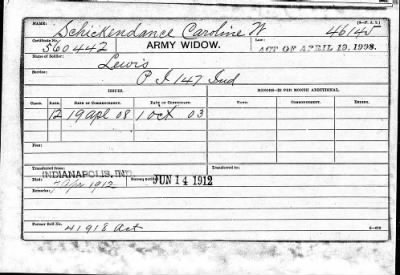 NAME: Schickendance Caroline W 46145
Certificate No. 560442 ARMY WIDOW. Law: ACT OF APRIL 19, 1908.
Name of Soldier: Lewis
Service: P I 147 Ind
ISSUES.
CLASS. RATE. DATE OF COMMENCEMENT. DATE OF CERTIFICATE. RATE. COMMENCEMENT. ENDING.
12 19 apl 08 1 Oct 03
Fees:
Transferred from INDIANAPOLIS, IND. Transferred to:
Died: 7 Apr 1912 JUN 14 1912
Remarks:
Former Roll No. 41918 Act